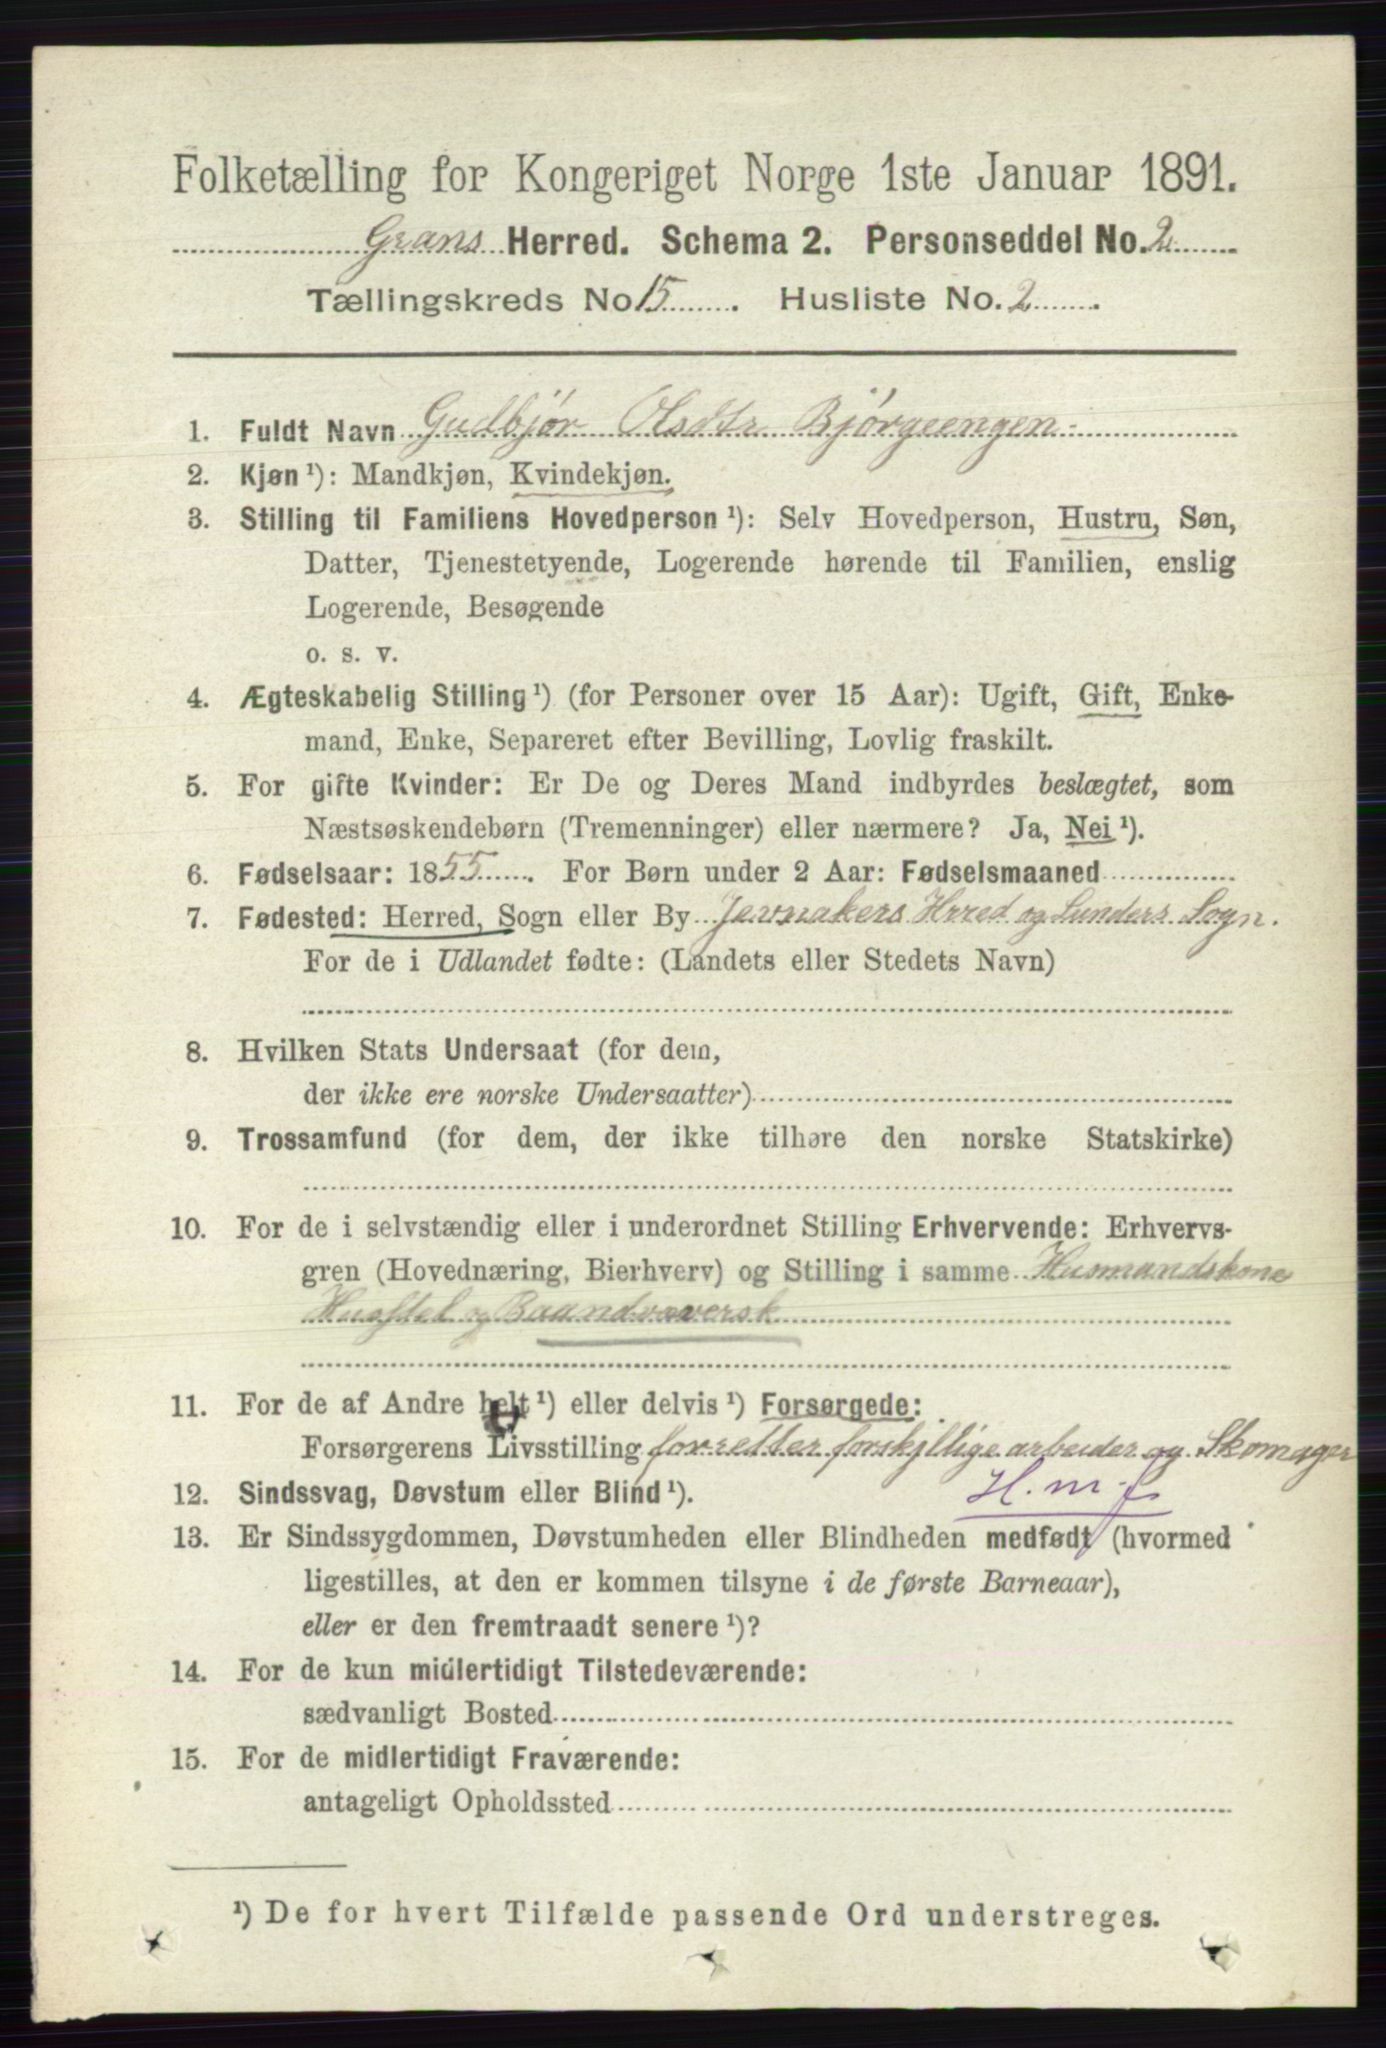 Folketælling for Kongeriget Norge 1ste Januar 1891.
Grans Herred. Schema 2. Personseddel No. 2
Tællingskreds No 15. Husliste No. 2.
1. Fuldt Navn Gudbjør Olsdtr Bjørgeengen
2. Kjøn ¹): Mandkjøn, Kvindekjøn.
3. Stilling til Familiens Hovedperson ¹): Selv Hovedperson, Hustru, Søn,
Datter, Tjenestetyende, Logerende hørende til Familien, enslig
Logerende, Besøgende
o. s. v.
4. Ægteskabelig Stilling ¹) (for Personer over 15 Aar): Ugift, Gift, Enke-
mand, Enke, Separeret efter Bevilling, Lovlig fraskilt.
5. For gifte Kvinder: Er De og Deres Mand indbyrdes beslægtet, som
Næstsøskendebørn (Tremenninger) eller nærmere? Ja, Nei ¹).
6. Fødselsaar: 1855. For Børn under 2 Aar: Fødselsmaaned
7. Fødested: Herred, Sogn eller By Jevnakers Hrred og Lunders Sogn.
For de i Udlandet fødte: (Landets eller Stedets Navn)
8. Hvilken Stats Undersaat (for dem,
der ikke ere norske Undersaatter)
9. Trossamfund (for dem, der ikke tilhøre den norske Statskirke)
10. For de i selvstændig eller i underordnet Stilling Erhvervende: Erhvervs-
gren (Hovednæring, Bierhverv) og Stilling i samme Husmandskone
Husstel og Baandvæversk
11. For de af Andre helt ¹) eller delvis ¹) Forsørgede:
Forsørgerens Livsstilling forretter forskjllige arbeider og Skomager
12. Sindssvag, Døvstum eller Blind ¹). H. m. f
13. Er Sindssygdommen, Døvstumheden eller Blindheden medfødt (hvormed
ligestilles, at den er kommen tilsyne i de første Barneaar),
eller er den fremtraadt senere ¹)?
14. For de kun midlertidigt Tilstedeværende:
sædvanligt Bosted
15. For de midlertidigt Fraværende:
antageligt Opholdssted
¹) De for hvert Tilfælde passende Ord understreges.